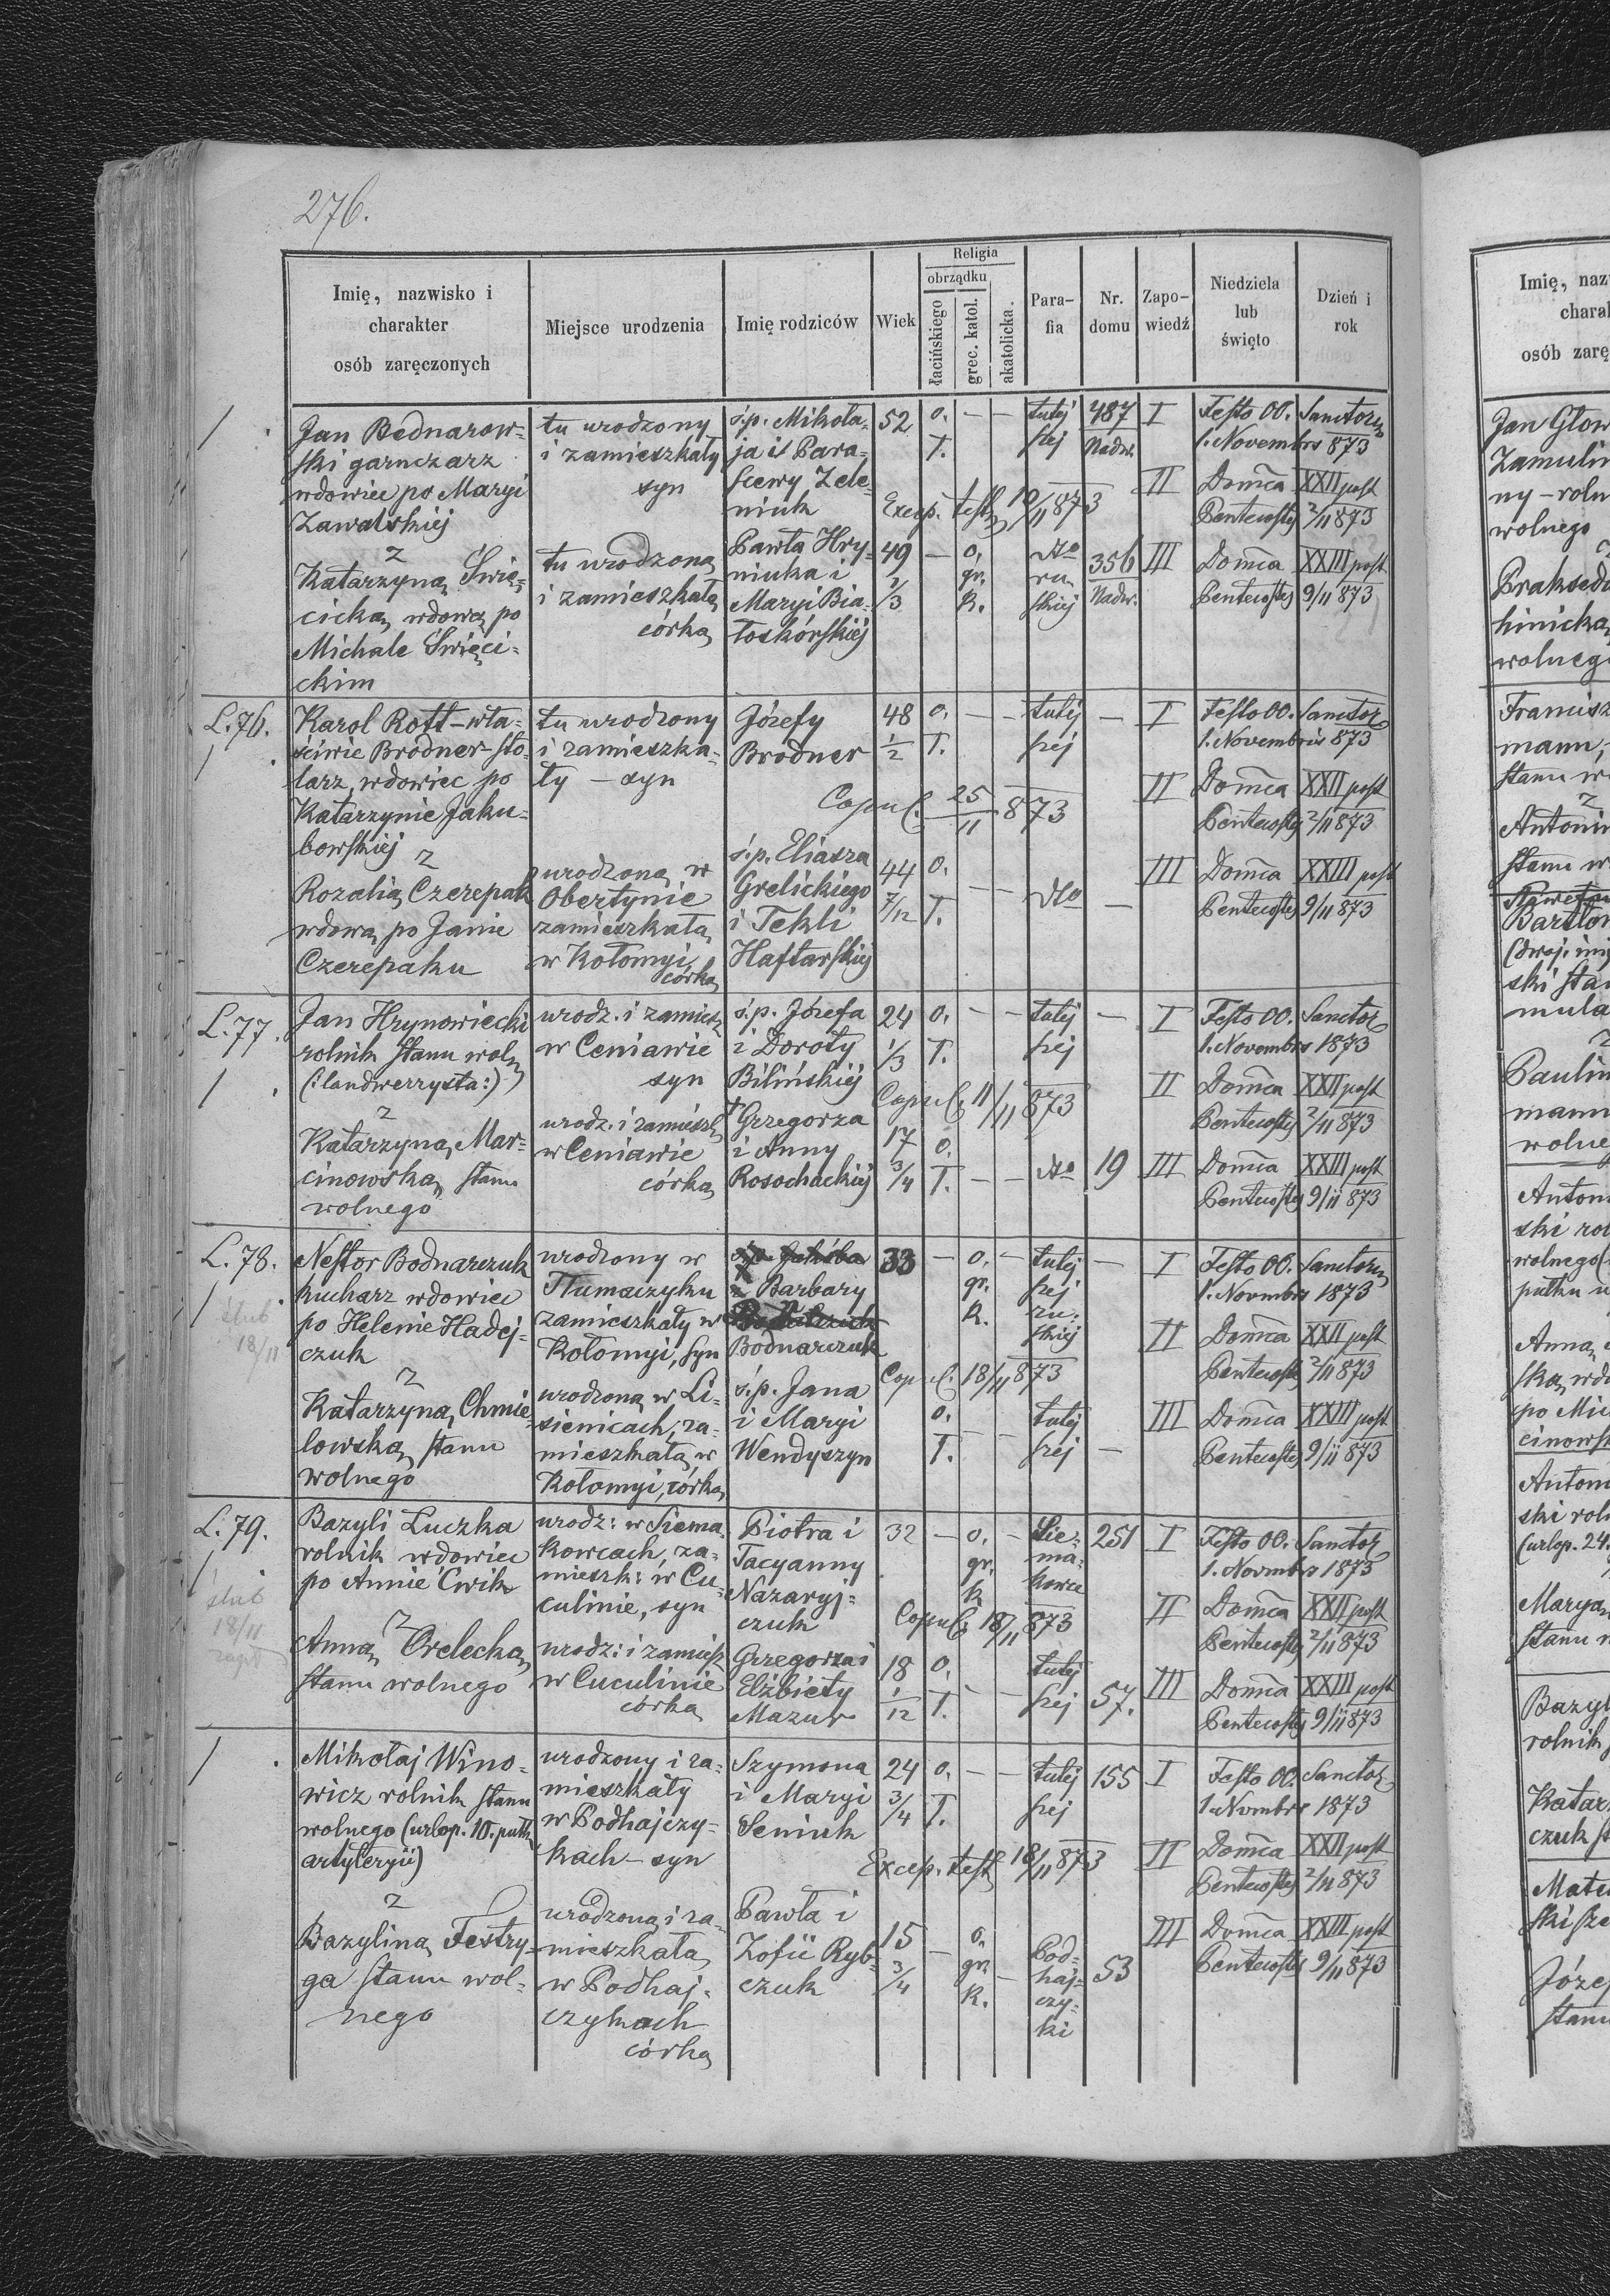 276.
Imię, nazwisko i
charakter
osób zaręczonych
Miejsce urodzenia
Imię rodziców
Wiek
Religia
obrządku
łacińskiego
grec. katol.
akatolicka.
Para-
fia
Nr.
domu
Zapo-
wiedź
Niedziela
lub
święto
Dzień i
rok
Jan Bednarow-
ski garnczarz
wdowiec po Maryi
Zawalskiéj
z
Katarzyną Świę-
cicką, wdową po
Michale Święci-
ckim
tu urodzony
i zamieszkały
syn
tu urodzoną
i zamieszkałą
córką
ś.p. Mikoła-
ja i Para-
scewy Zele-
niuk
Pawła Hry-
niuka i
Maryi Bia-
łoskórskiéj
52
49
1/3
o.
ł.
Excep. test. 10/11 873
o.
gr.
k.
tutej
szej
dto
ru-
skiéj
487
Nadw.
356
Nadw.
I Festo OO. Sanctor.
1. Novembrs 873
II Domca XXII post
Pentecostes 2/11 873
III Domca XXIII post
Pentecostes 9/11 873
L.76.
Karol Rott – wła-
ściwie Brodner – sto-
larz, wdowiec po
Katarzynie Jaku-
bowskiéj
z
Rozalią Czerepak
wdową po Janie
Czerepaku
tu urodzony
i zamieszka-
ły – syn
urodzoną w
Obertynie
zamieszkałą
w Kołomyi
córką
Józefy
Brodner
ś.p. Eliasza
Grelickiego
i Tekli
Haftarskiéj
48
1/2
44
7/12
o.
ł.
Copul. 25/11 873
o.
ł.
tutéj
széj
dto
I Festo OO. Sanctor.
1. Novembris 873
II Domca XXII post
Pentecostes 2/11 873
III Domca XXIII post
Pentecostes 9/11 873
L.77.
Jan Hrynowiecki
rolnik stanu woln.
(:landwerzysta:)
z
Katarzyną Mar-
cinowską stanu
wolnego
urodz. i zamiesz.
w Ceniawie
syn
urodz. i zamieszk.
w Ceniawie
córką
ś.p. Józefa
i Doroty
Bilińskiéj
† Grzegorza
i Anny
Rosochackiéj
24
1/3
17
3/4
o.
ł.
Copul. 11/11 873
o.
ł.
tutéj
széj
dto
19
I Festo OO. Sanctor.
1. Novembrs 1873
II Domca XXII post
Pentecostes 2/11 873
III Domca XXIII post
Pentecostes 9/11 873
L.78.
ślub
18/11
Nestor Bodnarczuk
kucharz wdowiec
po Helenie Hadej-
czuk
z
Katarzyną Chmie-
lowską stanu
wolnego
urodzony w
Tłumaczyku
zamieszkały w
Kołomyi, syn
urodzoną w Li-
sienicach, za-
mieszkałą w
Kołomyi, córką
ś.p. Jakóba
z Barbary
Bodnarczuk
ś.p. Jana
i Maryi
Wendyszyn
33
o.
gr.
k.
Copul. 18/11 873
o.
ł.
tutéj
széj
ru-
skiéj
tutéj
széj
I Festo OO. Sanctorum
1. Novmbrs 1873
II Domca XXII post
Pentecostes 2/11 873
III Domca XXIII post
Pentecostes 9/11 873
L.79.
ślub
18/11
Bazyli Luczka
rolnik wdowiec
po Annie Ćwik
z
Anną Orelecką
stanu wolnego
urodz: w Siema-
kowcach, za-
mieszk: w Cu-
culinie, syn
urodz: i zamiesz.
w Cuculinie
córką
Piotra i
Tacyanny
Nazaryj-
czuk
Grzegorza i
Elżbiéty
Mazur
32
18
1/12
o.
gr.
k.
Copul. 18/11 873
o.
ł.
Sie-
ma-
kowce
tutéj
széj
251
57.
I Festo OO. Sanctor.
1. Novmbrs 1873
II Domca XXII post
Pentecostes 2/11 873
III Domca XXIII post
Pentecostes 9/11 873
Mikołaj Wino-
wicz rolnik stanu
wolnego (urlop. 10. pułk.
artyleryi)
z
Bazyliną Festry-
gą stanu wol-
nego
urodzony i za-
mieszkały
w Podhajczy-
kach – syn
urodzoną i za-
mieszkałą
w Podhaj-
czykach
córką
Szymona
i Maryi
Seniuk
Pawła i
Zofii Ryb-
czuk
24
3/4
15
3/4
o.
ł.
Excep. test. 18/11 873
o.
gr.
k.
tutéj
széj
Pod-
haj-
czy-
ki
155
53
I Festo OO. Sanctor.
1. Novmbrs 1873
II Domca XXII post
Pentecostes 2/11 873
III Domca XXIII post
Pentecostes 9/11 873
Imię, naz
charak
osób zarę
Jan Głow
Zamulin
ny – roln
wolnego
Praksedą
hinicką
wolnego
Francisz
mann,
stanu w
z
Antonin
stanu w
Bartłom
ski stan
z
Paulin
mann
wolne
Antoni
ski rol
wolnego
pułku u
Anną
ską, wdo
po Mic
cinowsk
Antoni
ski roln
(urlop. 24.
Maryą
stanu w
Bazyl
rolnik
Katarz
czuk st
Mate
Józef
stanu